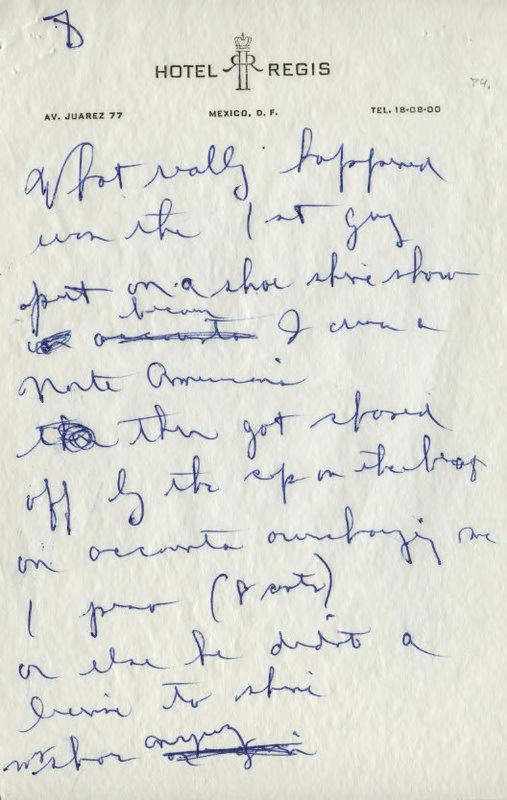 8
HOTEL RR REGIS
74.
AV. JUAREZ 77 MEXICO, D. F. TEL. 18-08-00
What really happened
was the 1st guy
put on a shoe shine show
because
accounta I was a
Norte Americani
then got shooed
off by the cop on the beat
on accounta overcharging me
1 peso (8 cents)
or else he didnt a
license to shine
my shoes anyway